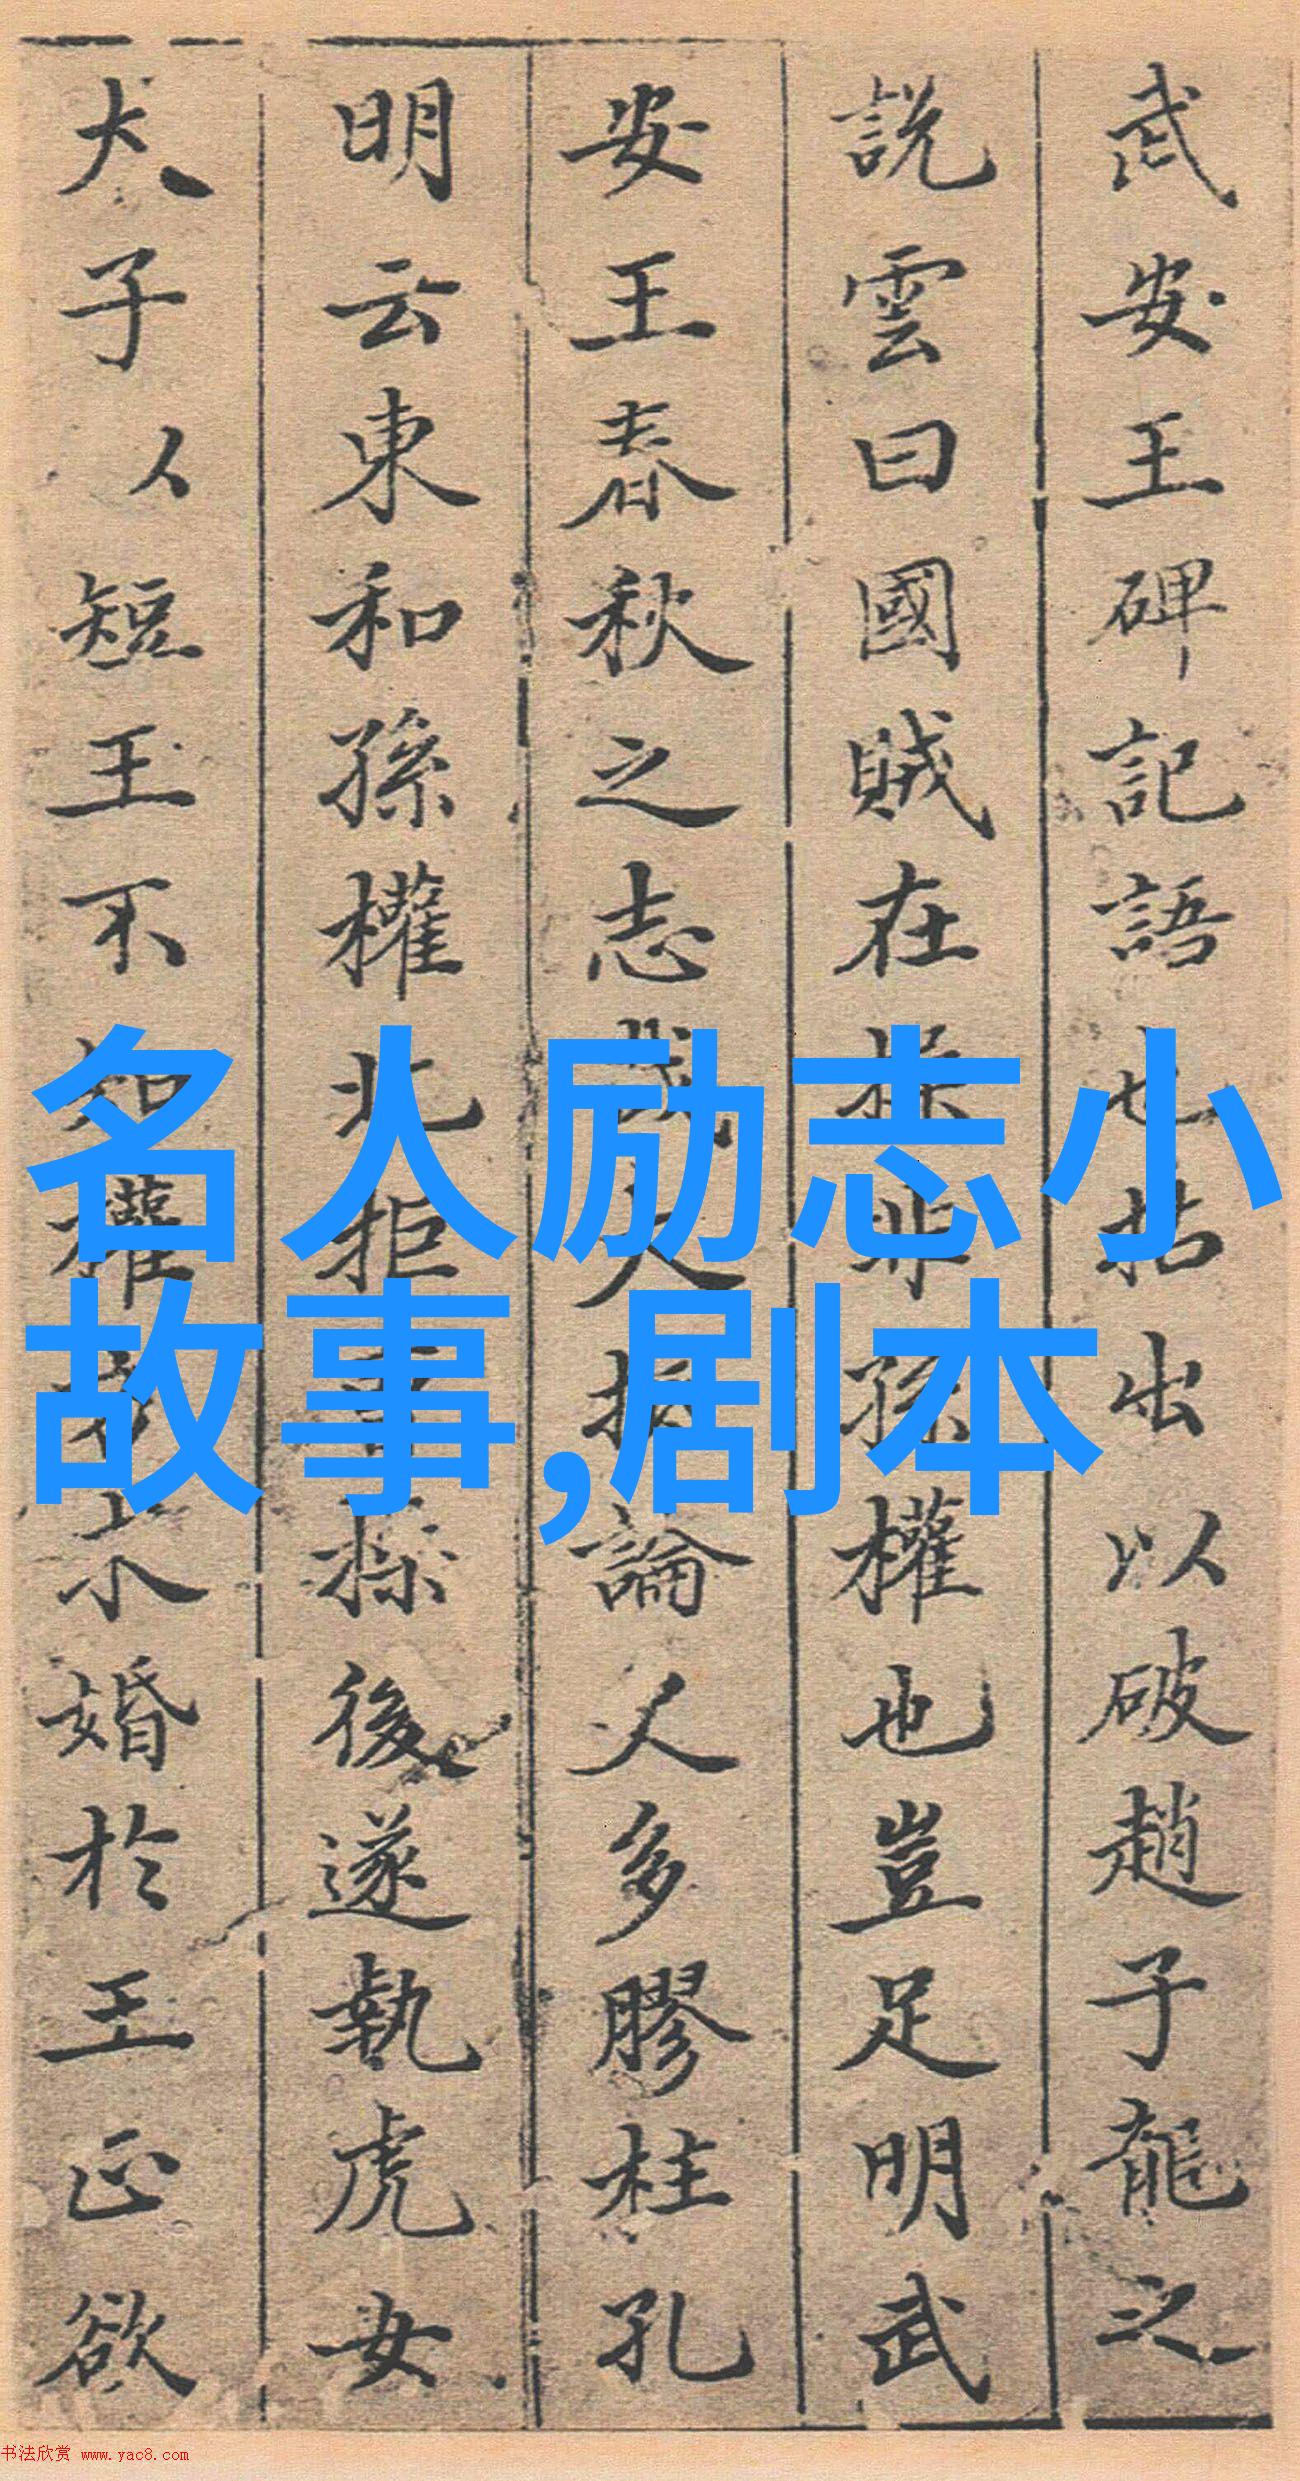 武安王碑記語也拈出以破趙子龍之
說雲曰國賊在操非孫權也豈足明武
安王春秋之志哉大抵論人多膠柱孔
明云東和孫權北拒曹操後遂執虎女
犬子以短王不知權
求婚於王正欲
名人励志小
故事,剧本
书法欣赏 www.yac8.com